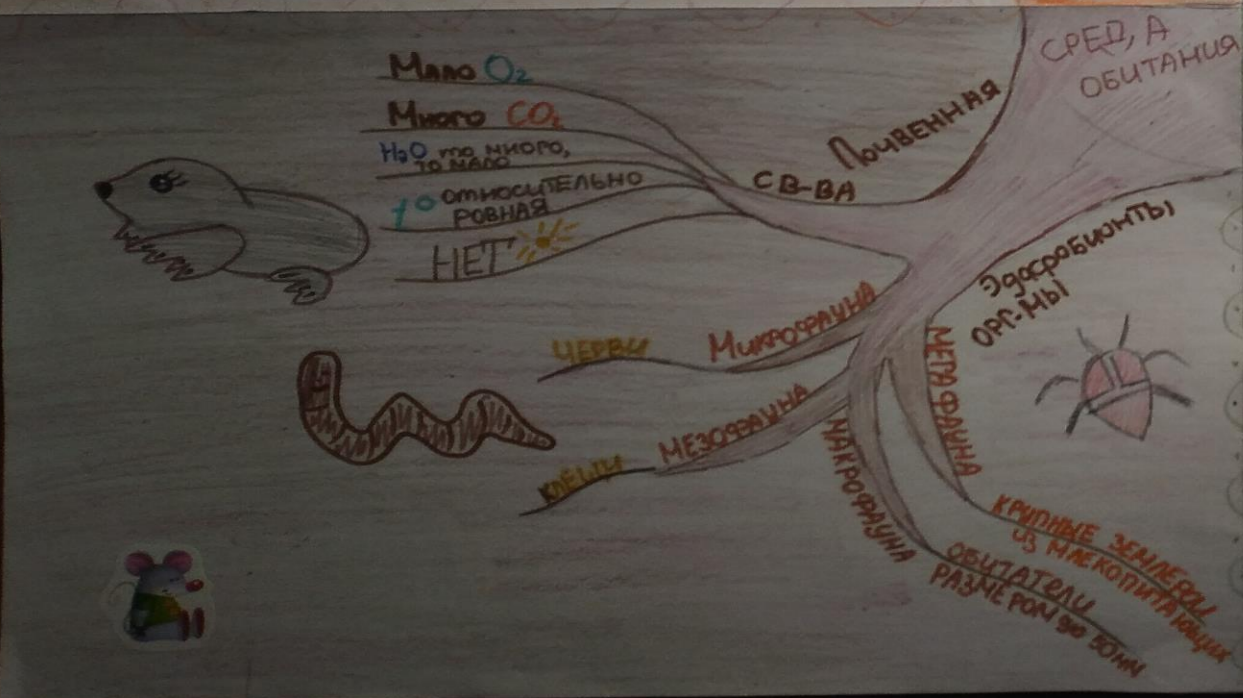 СРЕДА
ОБИТАНИЯ
Почвенная
СВ-ВА
Мало O₂
Много CO₂
H₂O то много,
то мало
t° относительно
ровная
НЕТ
Эдафобионты
ОРГ-МЫ
Микрофауна
ЧЕРВИ
МЕЗОФАУНА
КЛЕЩИ
МАКРОФАУНА
ОБИТАТЕЛИ
РАЗМЕРОМ до 50 мм
МЕГАФАУНА
КРУПНЫЕ ЗЕМЛЕРОИ
ИЗ МЛЕКОПИТАЮЩИХ